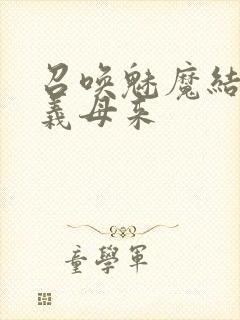 召唤魅魔結
義母来
童學軍